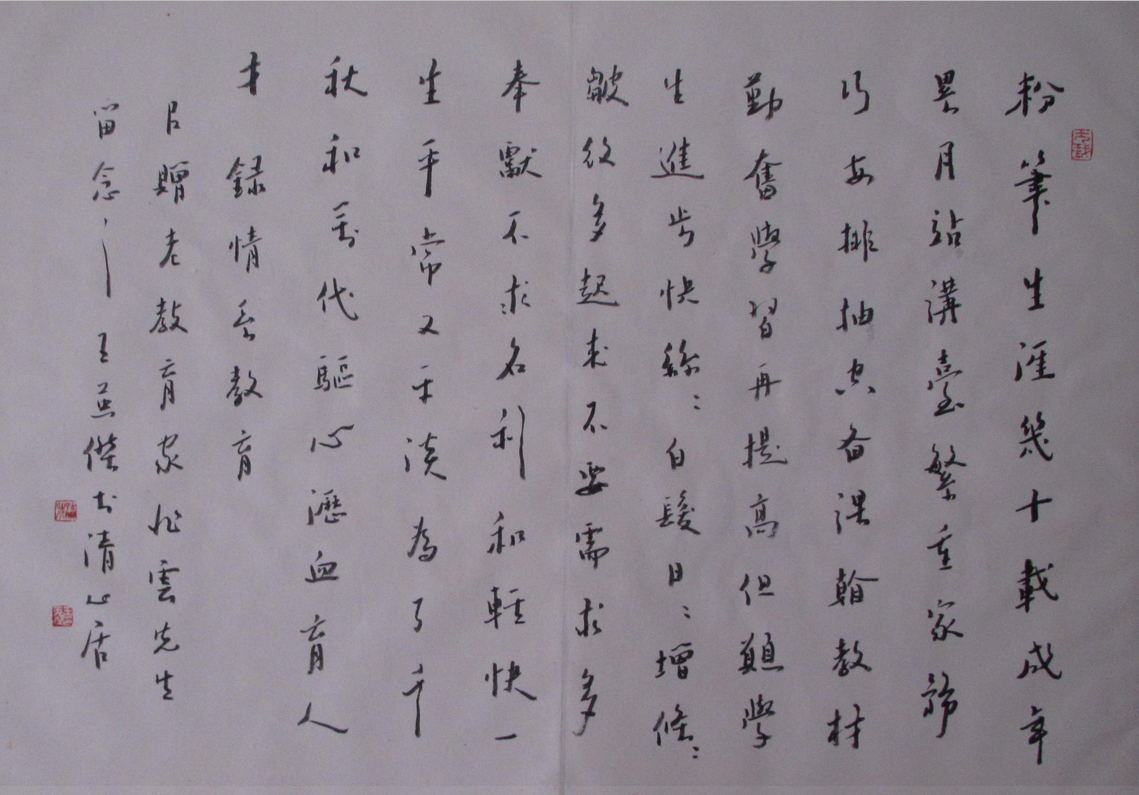 粉筆生涯幾十載成年
累月站講臺繁重家務
巧安排抽空备課翰教材
勤奮學習再提高但願學
生進步快絲〻白髮日〻增條〻
皺纹多起来不要需求多
奉獻不求名利和輕快一
生平常又平淡為了千
秋和万代驅心瀝血育人
才 録情系教育
吕贈老教育家 雲先生
留念 王英傑书清心居